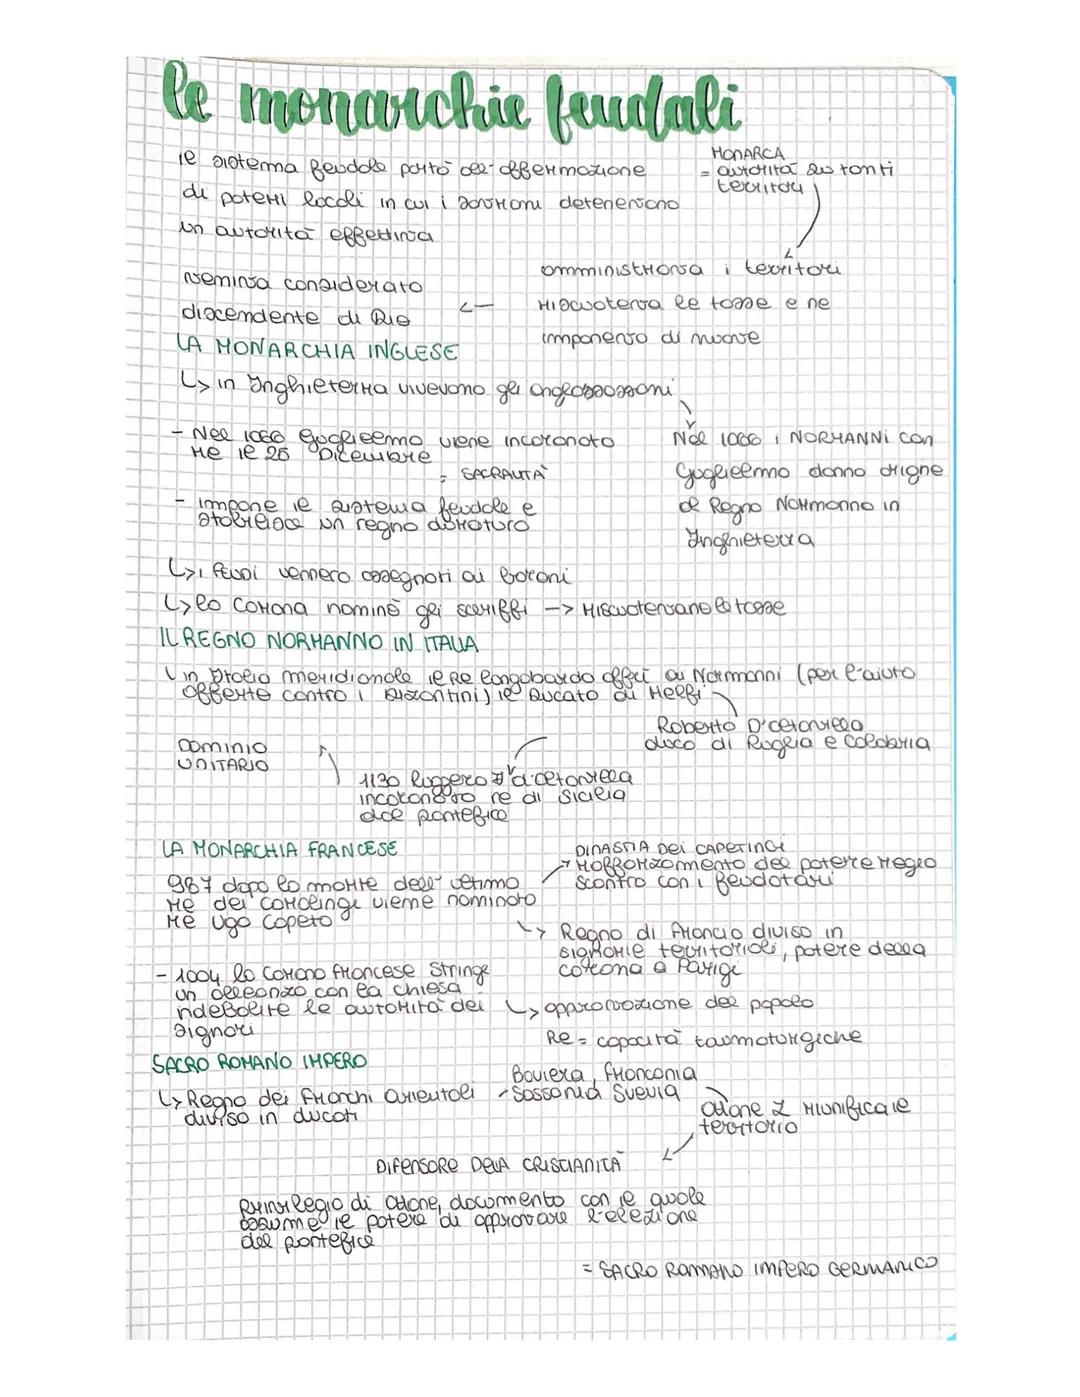 le monarchie feudali
MONARCA
= autorità su tanti
territori
il sistema feudale portò all'affermazione
di poteri locali in cui i sovrani detenevano
un autorità effettiva
amministrava i territori
riscuoteva le tasse e ne
imponeva di nuove
<-
veniva considerato
discendente di Dio
LA MONARCHIA INGLESE
↳ in Inghilterra vivevano gli anglosassoni
Nel 1066 i NORMANNI con
Guglielmo danno origine
al Regno Normanno in
Inghilterra
- Nel 1066 Guglielmo viene incoronato
re il 25 Dicembre
= SACRALITÀ
- impone il sistema feudale e
stabilisce un regno duraturo
↳ i feudi vennero assegnati ai baroni
↳ la corona nominò gli sceriffi -> riscuotevano le tasse
IL REGNO NORMANNO IN ITALIA
↳ in Italia meridionale il Re longobardo offrì ai Normanni (per l'aiuto
offerto contro i Bizantini) il Ducato di Melfi
Roberto D'altavilla
duca di Puglia e Calabria
DOMINIO
UNITARIO
1130 Ruggero d'altavilla
incoronato re di Sicilia
dal pontefice
LA MONARCHIA FRANCESE
DINASTIA DEI CAPETINGI
rafforzamento del potere regio
scontro con i feudatari
987 dopo la morte dell'ultimo
re dei carolingi viene nominato
re Ugo Capeto
↳ Regno di Francia diviso in
signorie territoriali, potere della
corona a Parigi
- 1004 la corona francese stringe
un alleanza con la chiesa
indebolire le autorità dei
signori
↳ approvazione del popolo
Re = capacità taumaturgiche
SACRO ROMANO IMPERO
↳ Regno dei Franchi orientali
diviso in ducati
Baviera, Franconia
- Sassonia Svevia
Otone I riunifica il
territorio
DIFENSORE DELLA CRISTIANITÀ
privilegio di Otone, documento con il quale
assume il potere di approvare l'elezione
del pontefice
= SACRO ROMANO IMPERO GERMANICO